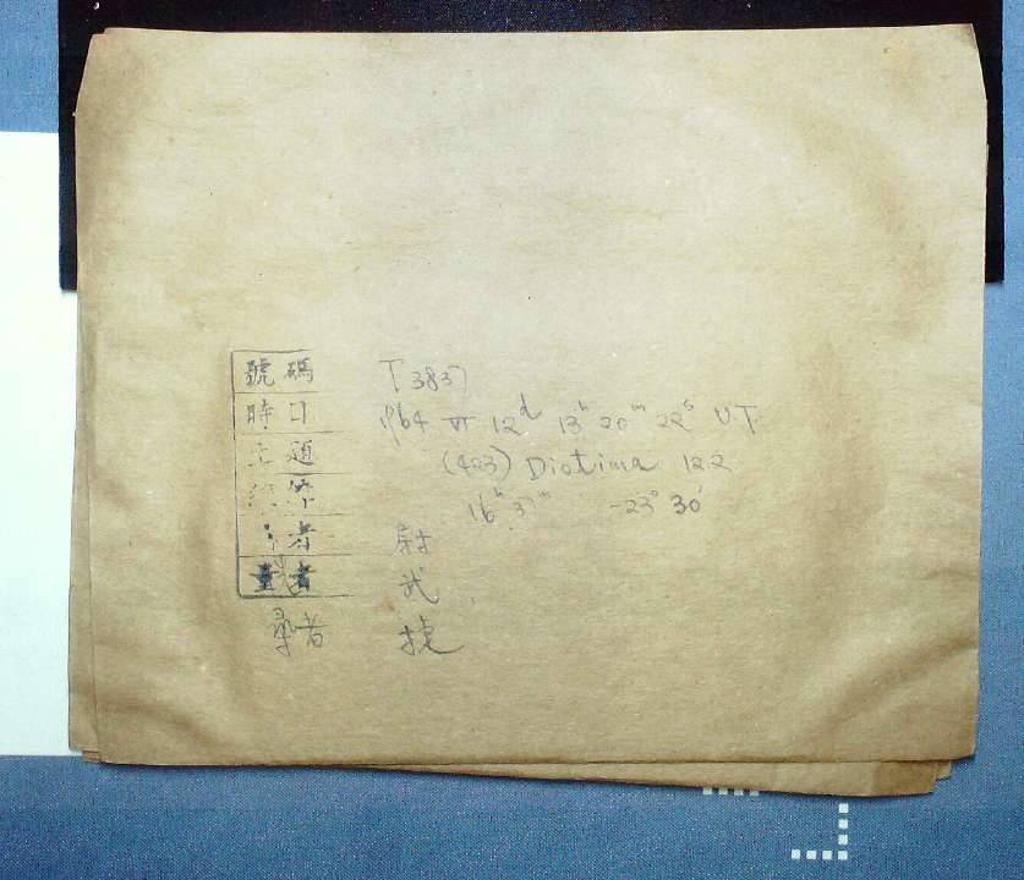 號碼 T 3837
時日 1964 VI 12d 13h 20m 22s U.T.
主題 (423) Diotima 12.2
16h 37m -23° 30'
者
量者 武
者